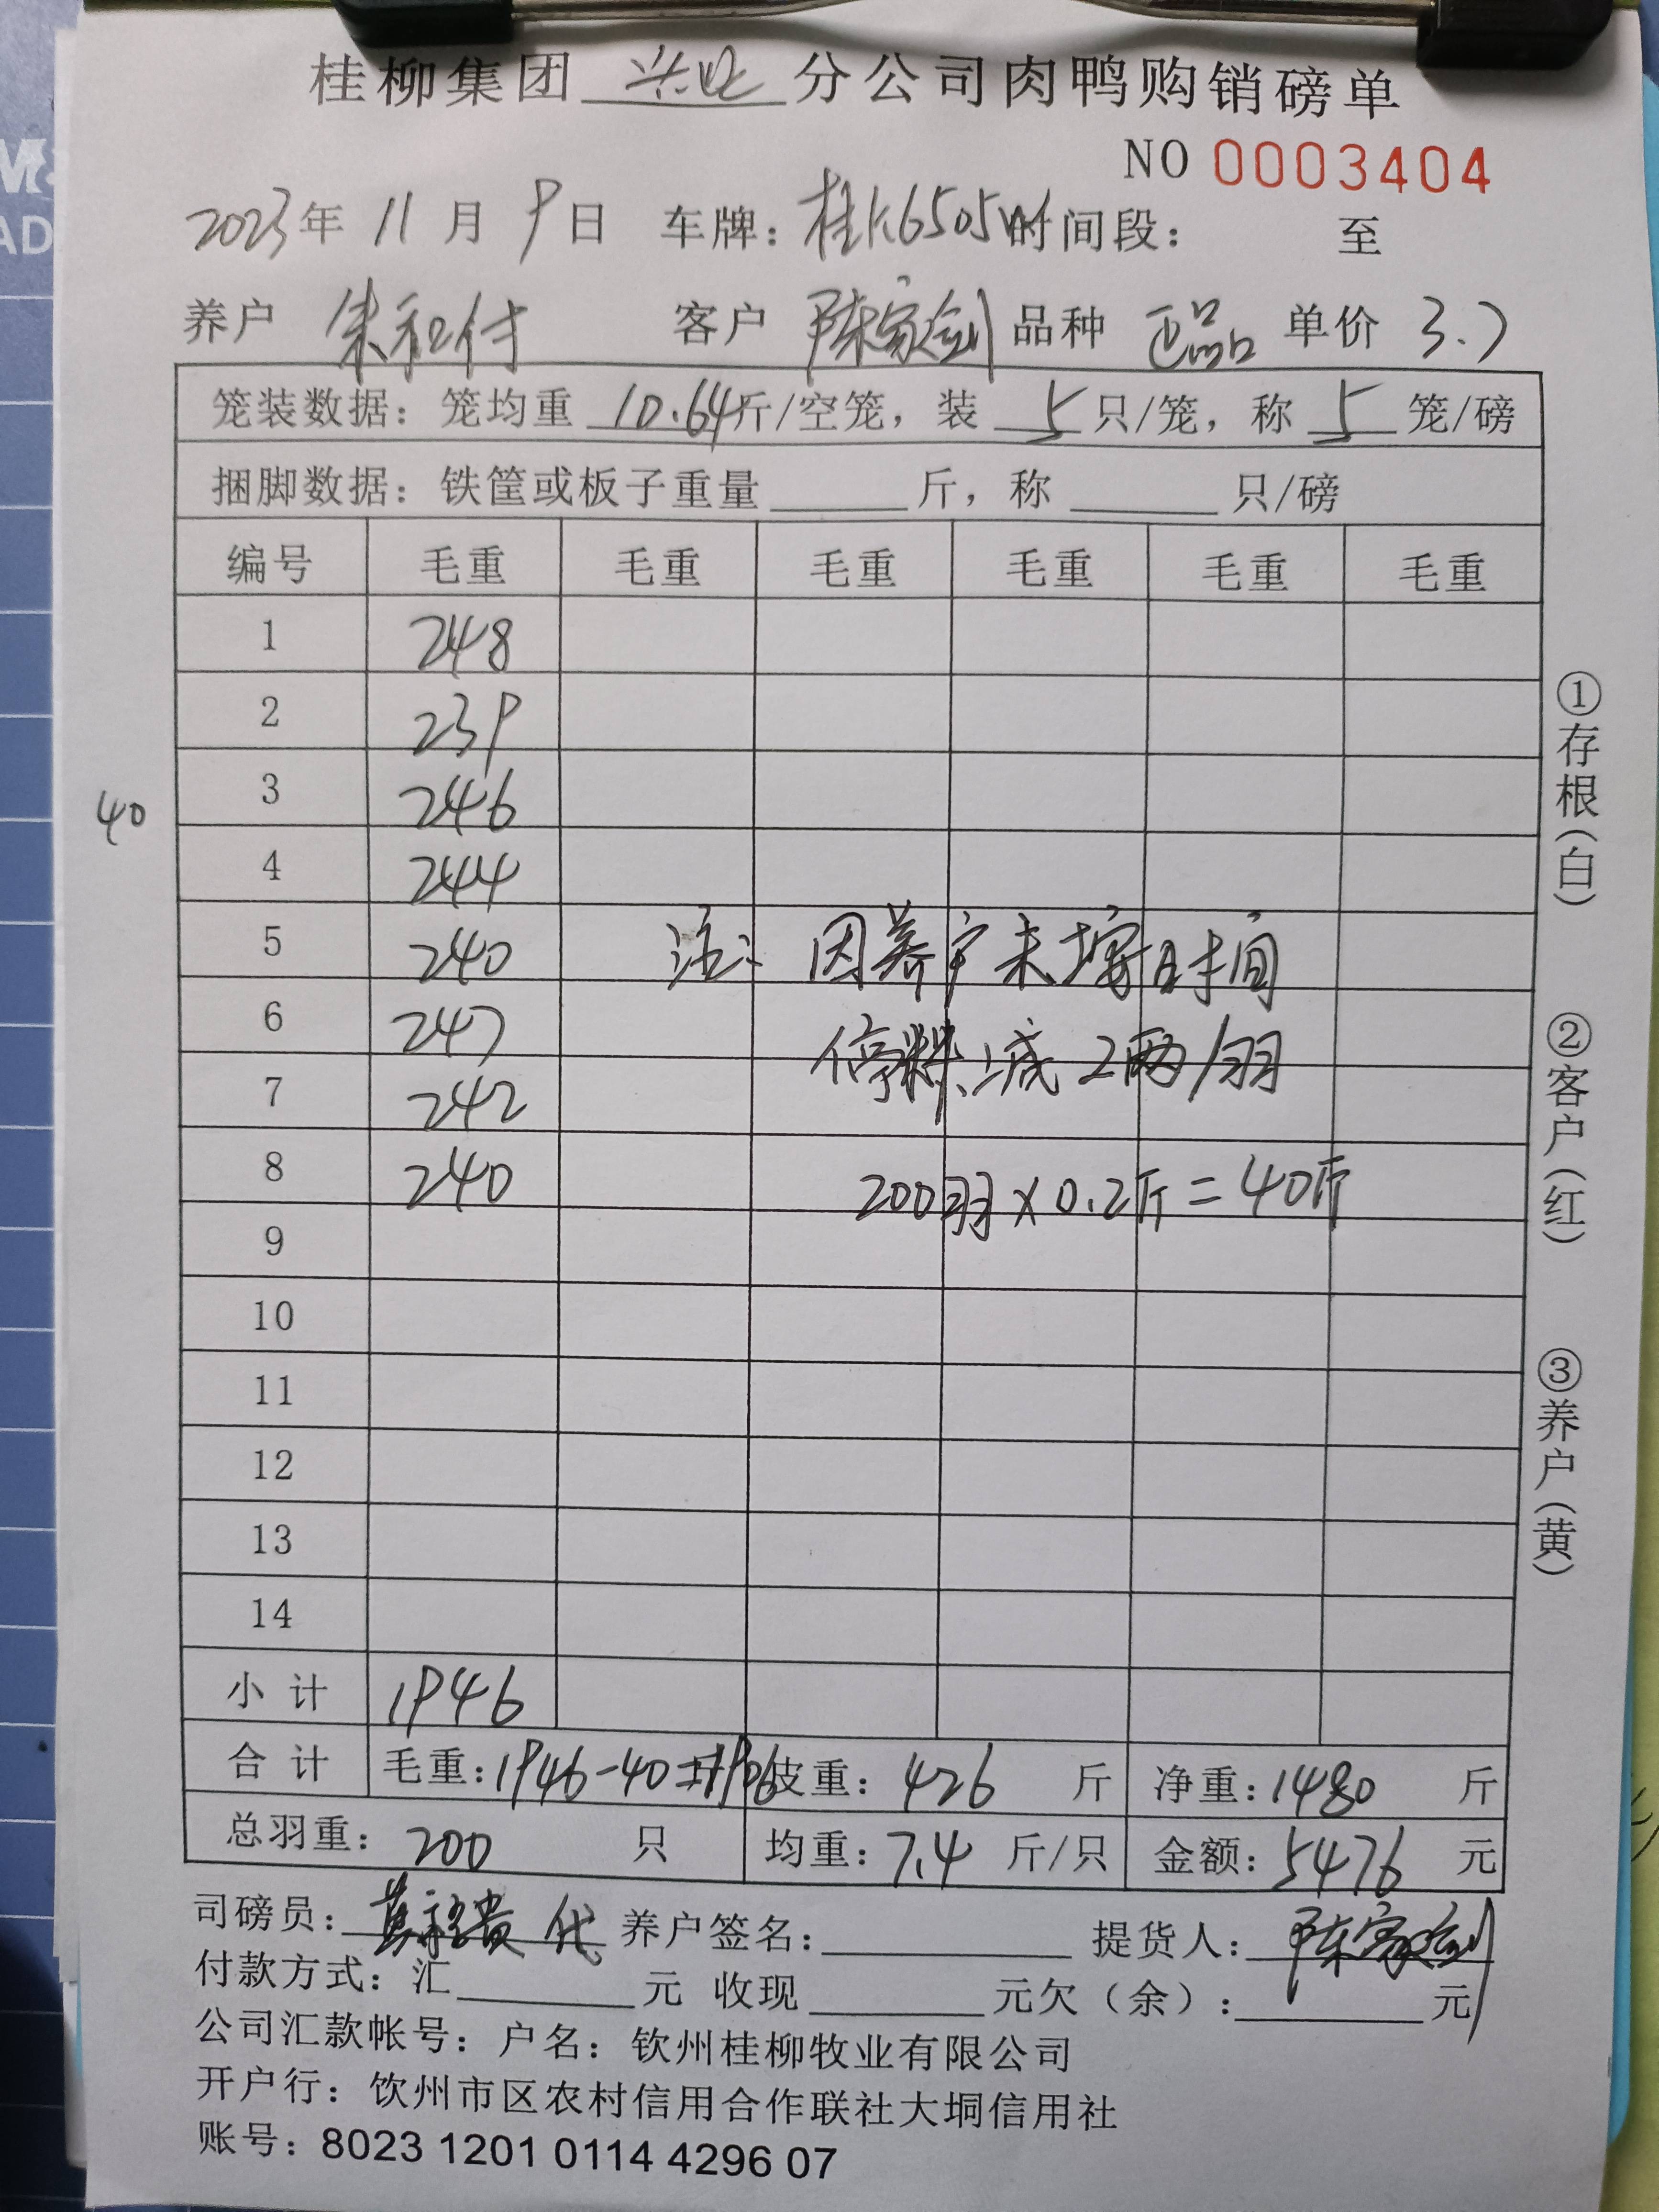 桂柳集团 兴业 分公司肉鸭购销磅单
NO 0003404
2023年 11 月 9日 车牌：桂K6505W 时间段： 至
养户 朱和付 客户 陈家剑 品种 正品 单价 3.7
笼装数据：笼均重 10.64斤/空笼，装 5 只/笼，称 5 笼/磅
捆脚数据：铁筐或板子重量 斤，称 只/磅
编号 毛重 毛重 毛重 毛重 毛重 毛重
1 248
2 239
3 246
40
4 244
5 240 注：因养户未按时间
6 247 停料，减2两/羽
7 242
8 240 200羽×0.2斤=40斤
9
10
11
12
13
14
小计 1946
合计 毛重：1946-40=1906 皮重：426 斤 净重：1480 斤
总羽重：200 只 均重：7.4 斤/只 金额：5476 元
司磅员： 代 养户签名： 提货人：陈家剑
付款方式：汇 元 收现 元欠（余）： 元
公司汇款帐号：户名：钦州桂柳牧业有限公司
开户行：饮州市区农村信用合作联社大垌信用社
账号：8023 1201 0114 4296 07
①存根（白）
②客户（红）
③养户（黄）